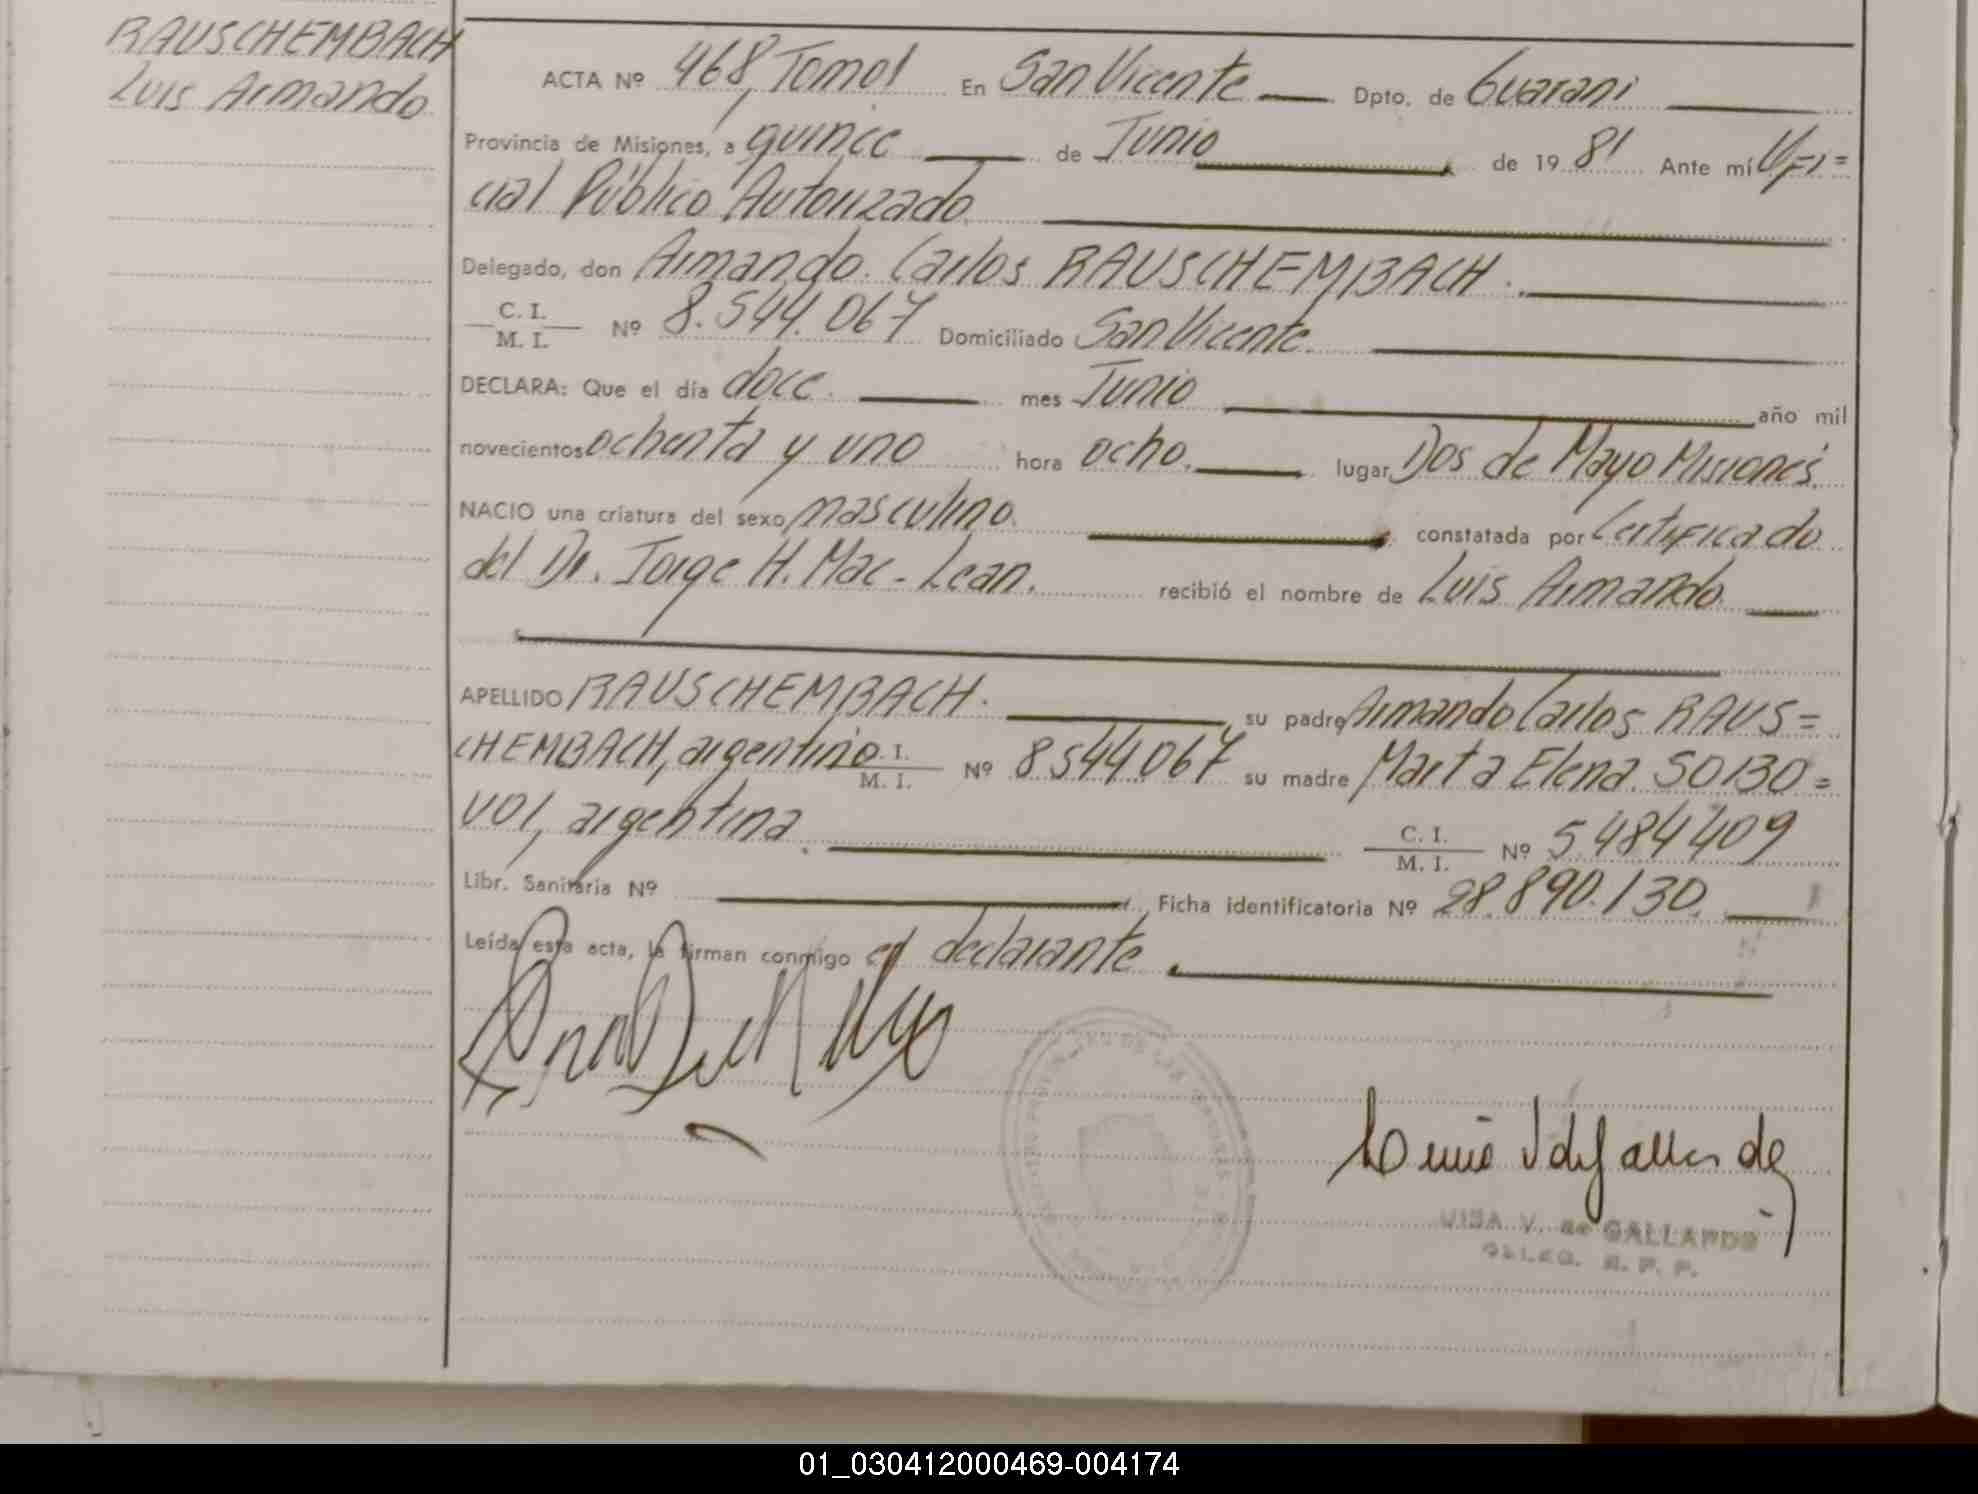 RAUSCHEMBACH
Luis Armando
ACTA Nº 468, Tomo I En San Vicente Dpto. de Guarani
Provincia de Misiones, a quince de Junio de 19 81 Ante mí Ofi=
cial Público Autorizado.
Delegado, don Armando Carlos RAUSCHEMBACH.
C. I.
M. I. Nº 8.544.067 Domiciliado San Vicente.
DECLARA: Que el día doce. mes Junio año mil
novecientos ochenta y uno hora ocho. lugar Dos de Mayo Misiones.
NACIO una criatura del sexo masculino. constatada por Certificado
del Dr. Jorge H. Mac-Lean. recibió el nombre de Luis Armando
APELLIDO RAUSCHEMBACH. su padre Armando Carlos RAUS=
CHEMBACH, argentino C. I.
M. I. Nº 8544.067 su madre Marta Elena SOBO=
VOI, argentina. C. I.
M. I. Nº 5.484409
Libr. Sanitaria Nº Ficha identificatoria Nº 28.890.130.
Leída esta acta, la firman conmigo el declarante.
V. de GALLARDO
01_030412000469-004174